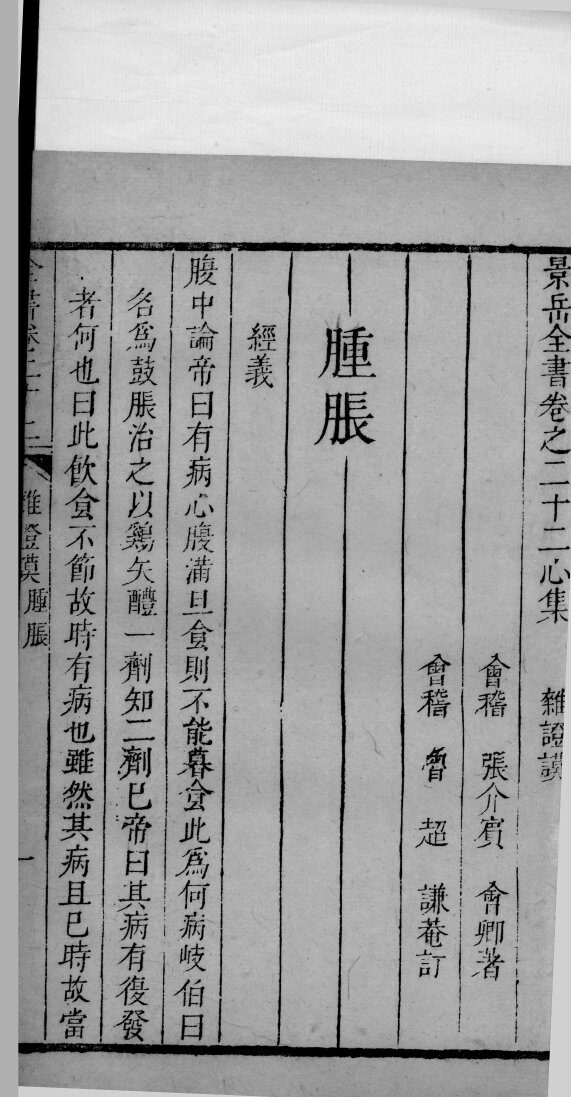 景岳全書卷之二十二心集 雜證謨
會稽 張介賓 會卿著
會稽 魯 超 謙菴訂
腫脹
經義
腹中論帝曰有病心腹滿旦食則不能暮食此爲何病岐伯曰
名爲鼓脹治之以鷄矢醴一劑知二劑已帝曰其病有復發
者何也曰此飲食不節故時有病也雖然其病且已時故當
全書卷二十二 雜證謨 腫脹 一